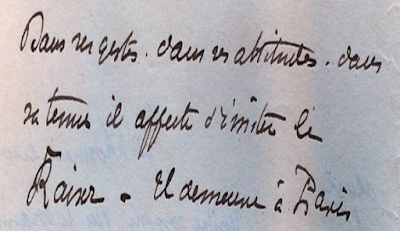 Dans ses gestes. dans ses attitudes. dans
sa tenue il affecte d'imiter le
Kaiser. Il demeure à Paris